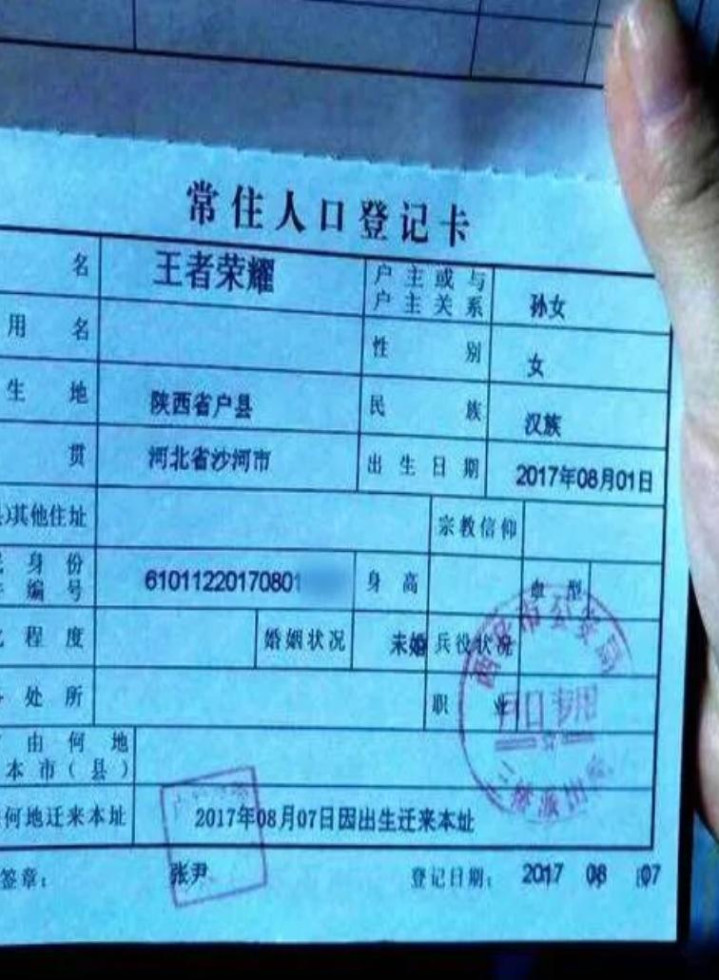 常住人口登记卡
名 王者荣耀 户主或与户主关系 孙女
用名 性别 女
生地 陕西省户县 民族 汉族
贯 河北省沙河市 出生日期 2017年08月01日
)其他住址 宗教信仰
身份
编号 61011220170801 身高 血型
程度 婚姻状况 未婚 兵役状况
处所 职业
由何地
本市(县)
何地迁来本址 2017年08月07日因出生迁来本址
签章: 张尹 登记日期: 2017 08 07
西安市公安局
户口专用
三桥派出所